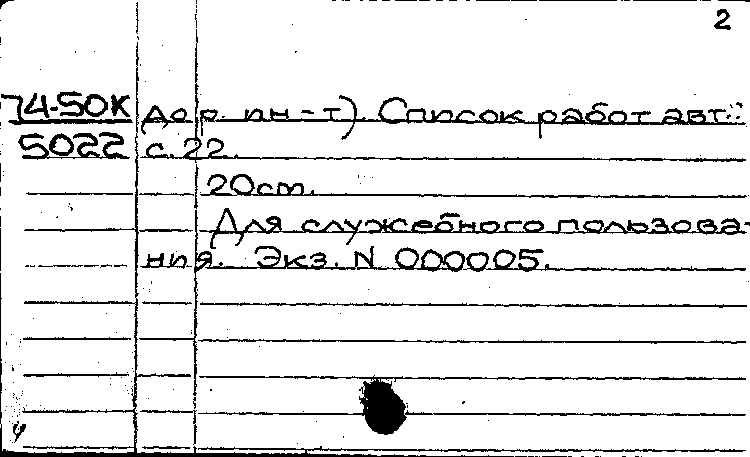 2
74-50К дор. ин-т). Список работ авт.:
5022 с. 22.
20 cm.
Для служебного пользова-
ния. Экз. N 000005.